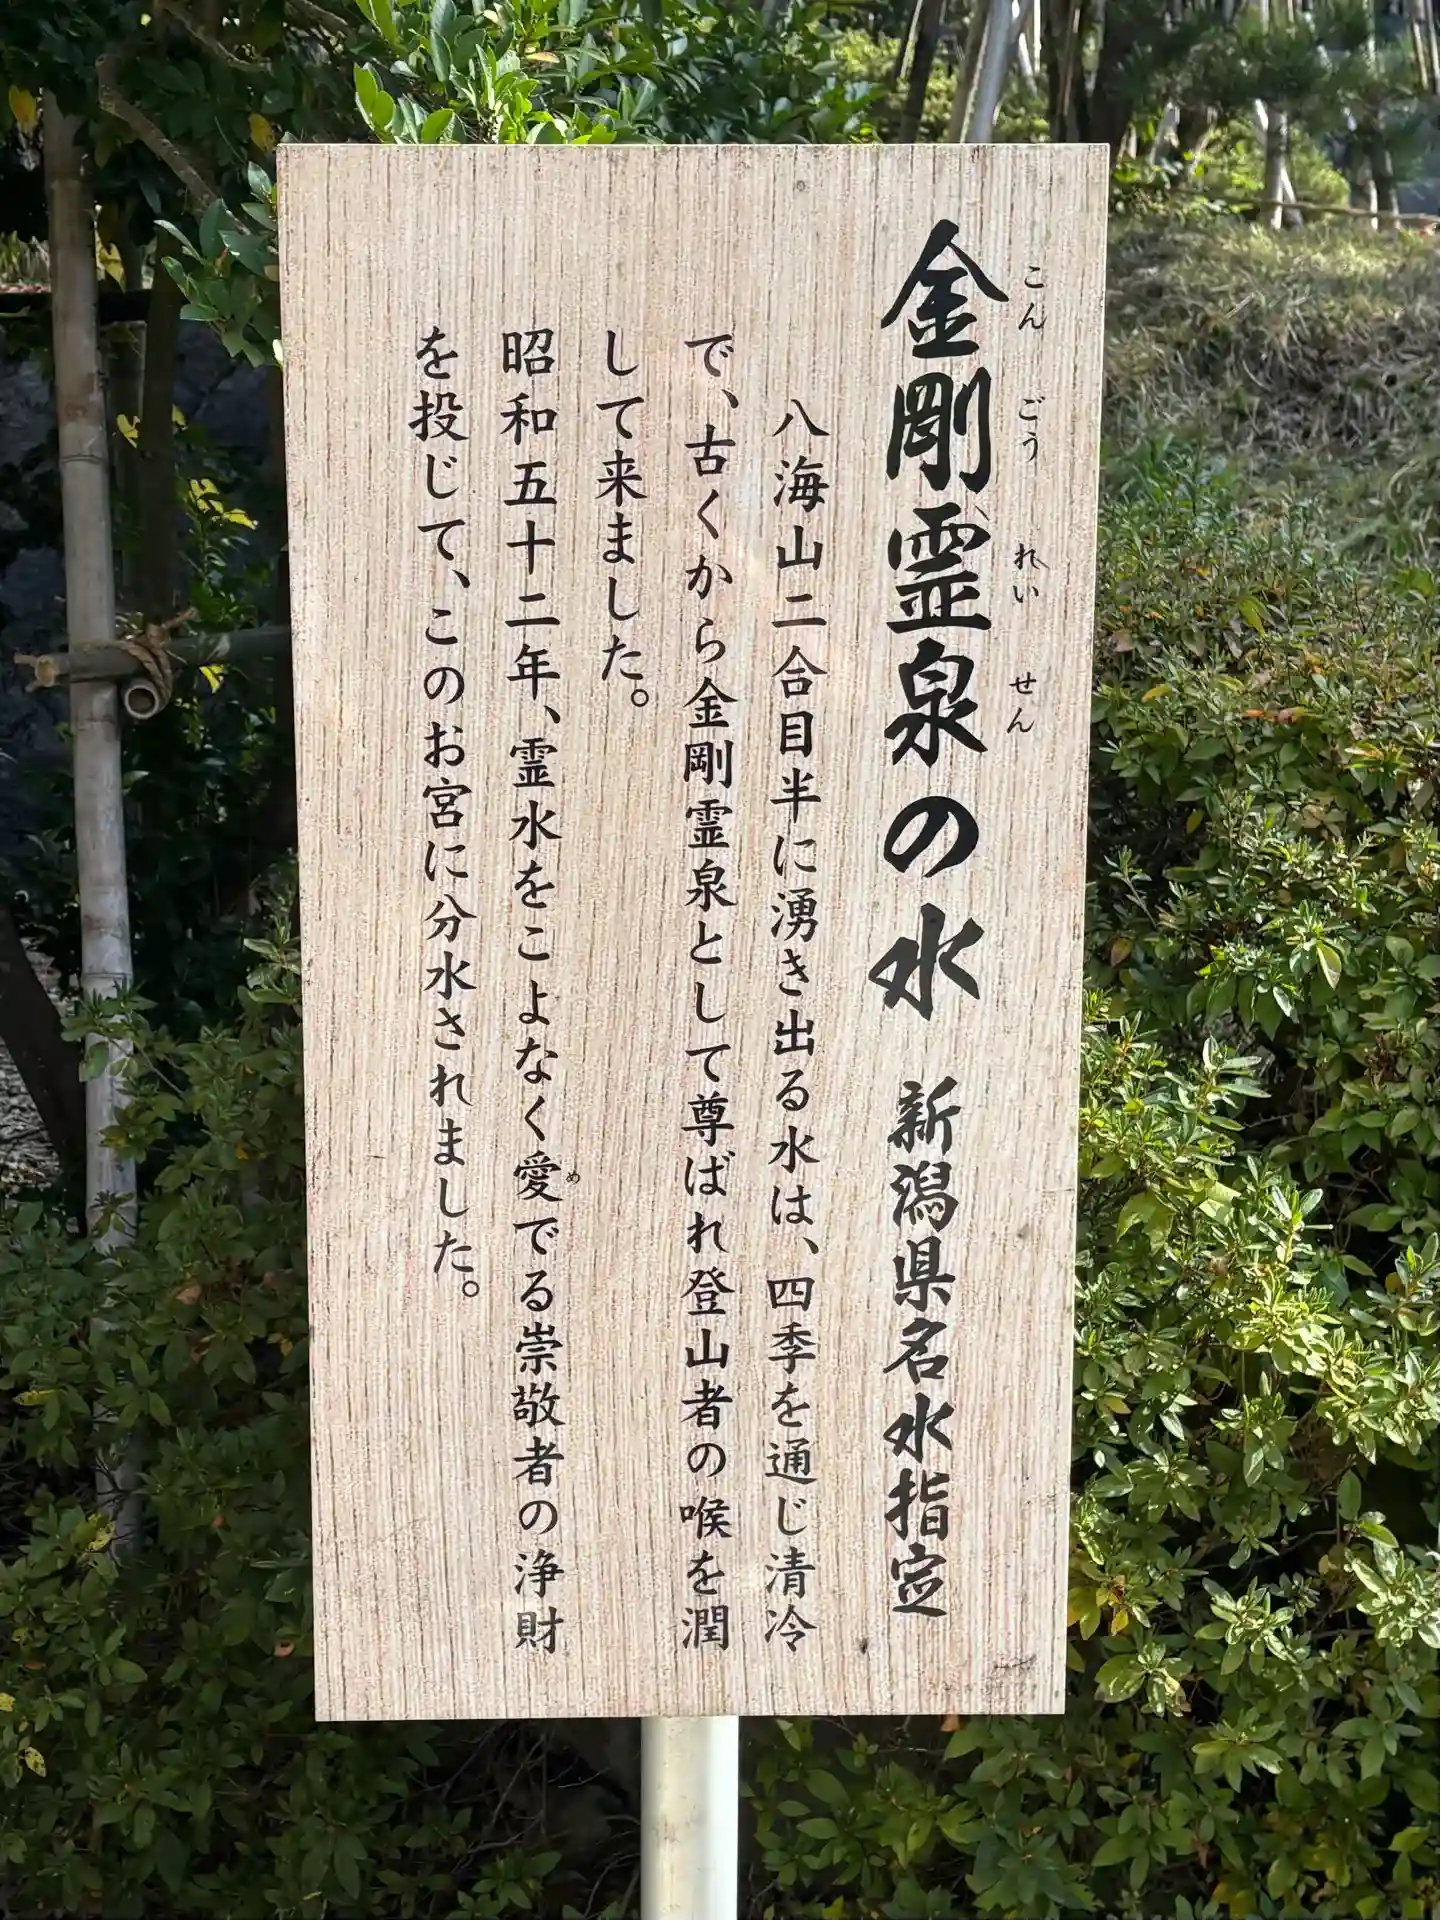 金剛霊泉の水 新潟県名水指定
こんごうれいせん
八海山二合目半に湧き出る水は、四季を通じ清冷
で、古くから金剛霊泉として尊ばれ登山者の喉を潤
して来ました。
昭和五十二年、霊水をこよなく愛でる崇敬者の浄財
め
を投じて、このお宮に分水されました。